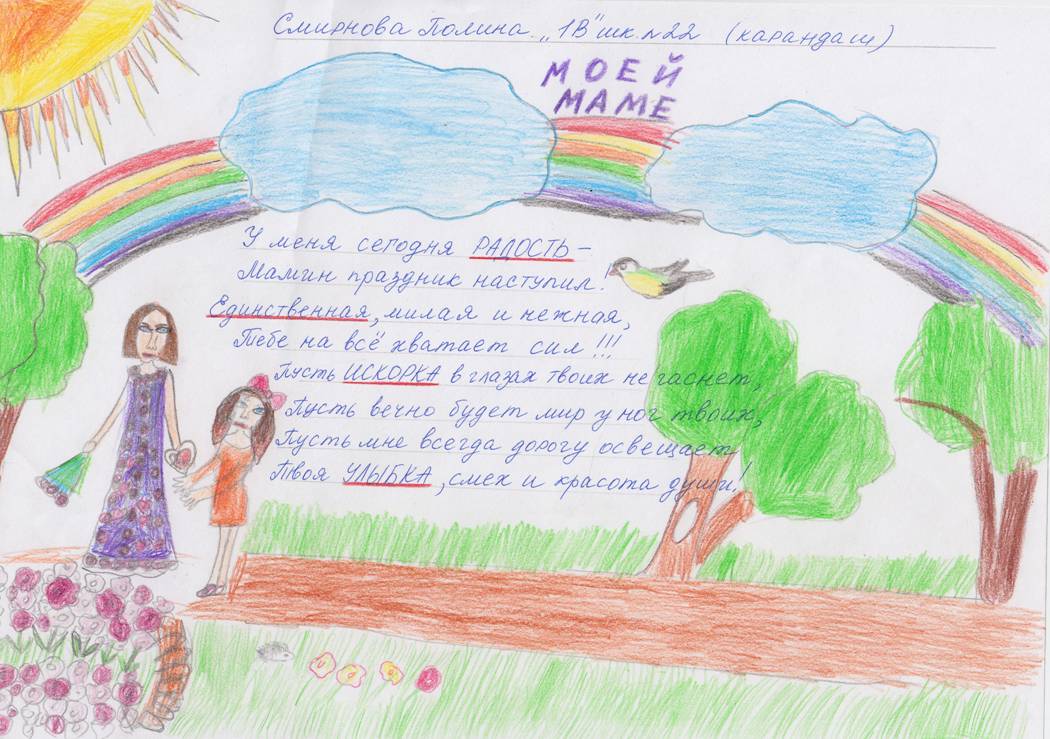 Смирнова Полина „1В" шк. № 22 (карандаш)
МОЕЙ
МАМЕ
У меня сегодня РАДОСТЬ –
Мамин праздник наступил!
Единственная, милая и нежная,
Тебе на всё хватает сил!!!
Пусть ИСКОРКА в глазах твоих не гаснет,
Пусть вечно будет мир у ног твоих,
Пусть мне всегда дорогу освещает
Твоя УЛЫБКА, смех и красота души!